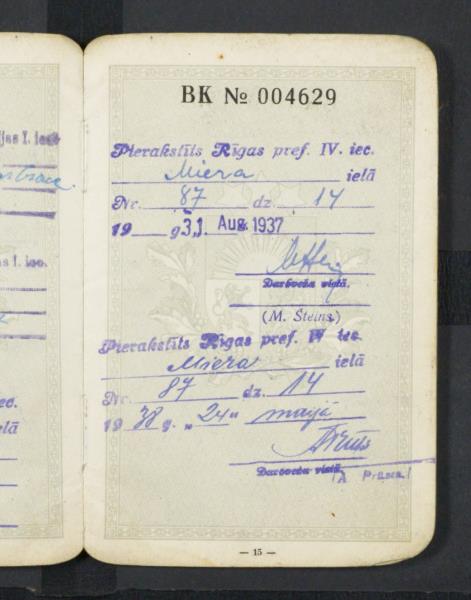 jas I. iec.
s I. iec.
ec.
elā
BK № 004629
Pierakstīts Rīgas pref. IV. iec.
Miera ielā
Nr. 87 dz. 14
19 g. 31. Aug. 1937
Darbveža vietā.
(M. Šteins.)
Pierakstīts Rīgas pref. IV iec.
Miera ielā
Nr. 87 dz. 14
1938 g. „24" maijā
Darbveža vietā.
— 15 —